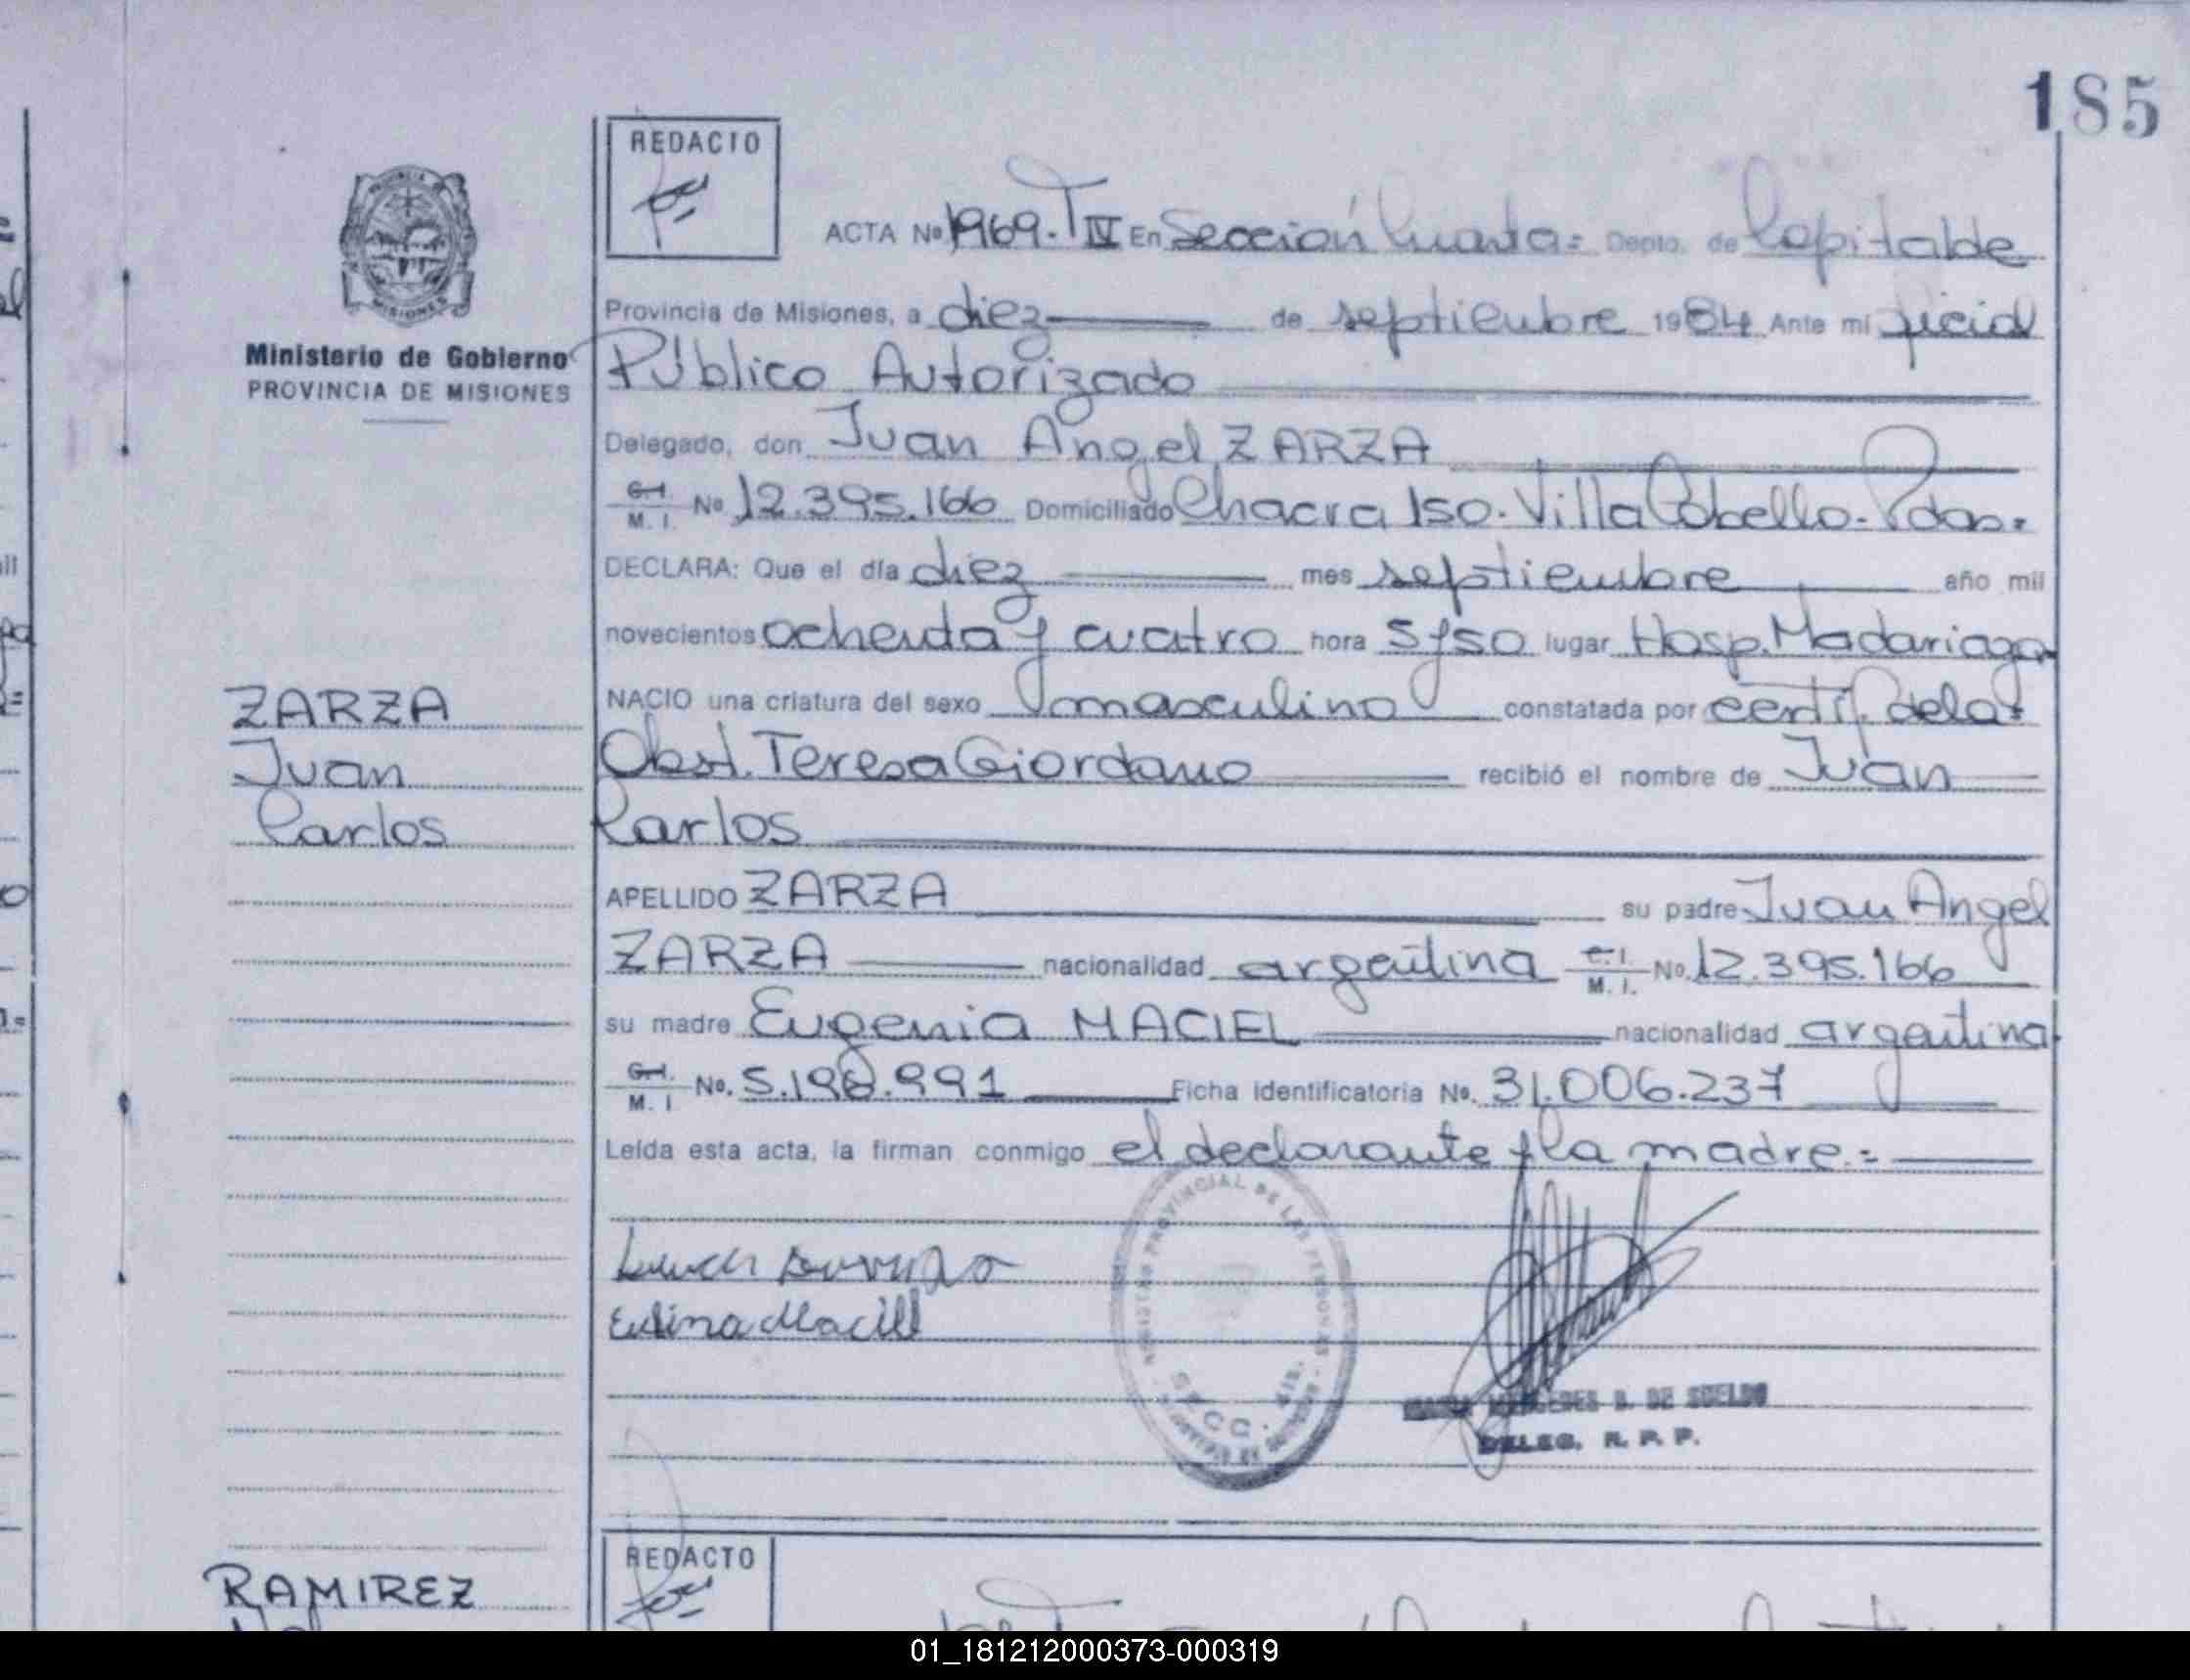 185
REDACTO
PROVINCIA DE
MISIONES
Ministerio de Gobierno
PROVINCIA DE MISIONES
ACTA Nº 1969. T IV En Sección Cuarta= Depto. de Capital de
Provincia de Misiones, a diez de septiembre 1984 Ante mi
Público Autorizado
Delegado, don Juan Angel ZARZA
C.I. M. I. Nº 12.395.166 Domiciliado Chacra 150. Villa Cabello. Pdas.
DECLARA: Que el día diez mes septiembre año mil
novecientos ochenta y cuatro hora 5 y 50 lugar Hosp. Madariaga
NACIO una criatura del sexo masculino constatada por certif. de la
Obst. Teresa Giordano recibió el nombre de Juan
Carlos
ZARZA
Juan
Carlos
APELLIDO ZARZA su padre Juan Angel
ZARZA nacionalidad argentina C.I. M. I. No. 12.395.166
su madre Eugenia MACIEL nacionalidad argentina
C.I. M. I No. 5.198.991 Ficha identificatoria No. 31.006.237
Leída esta acta, la firman conmigo el declarante y la madre.=
REGISTRO PROVINCIAL DE LAS PERSONAS
SECC. 4
DE SUELDO
DELEG. R. P. P.
REDACTO
RAMIREZ
01_181212000373-000319